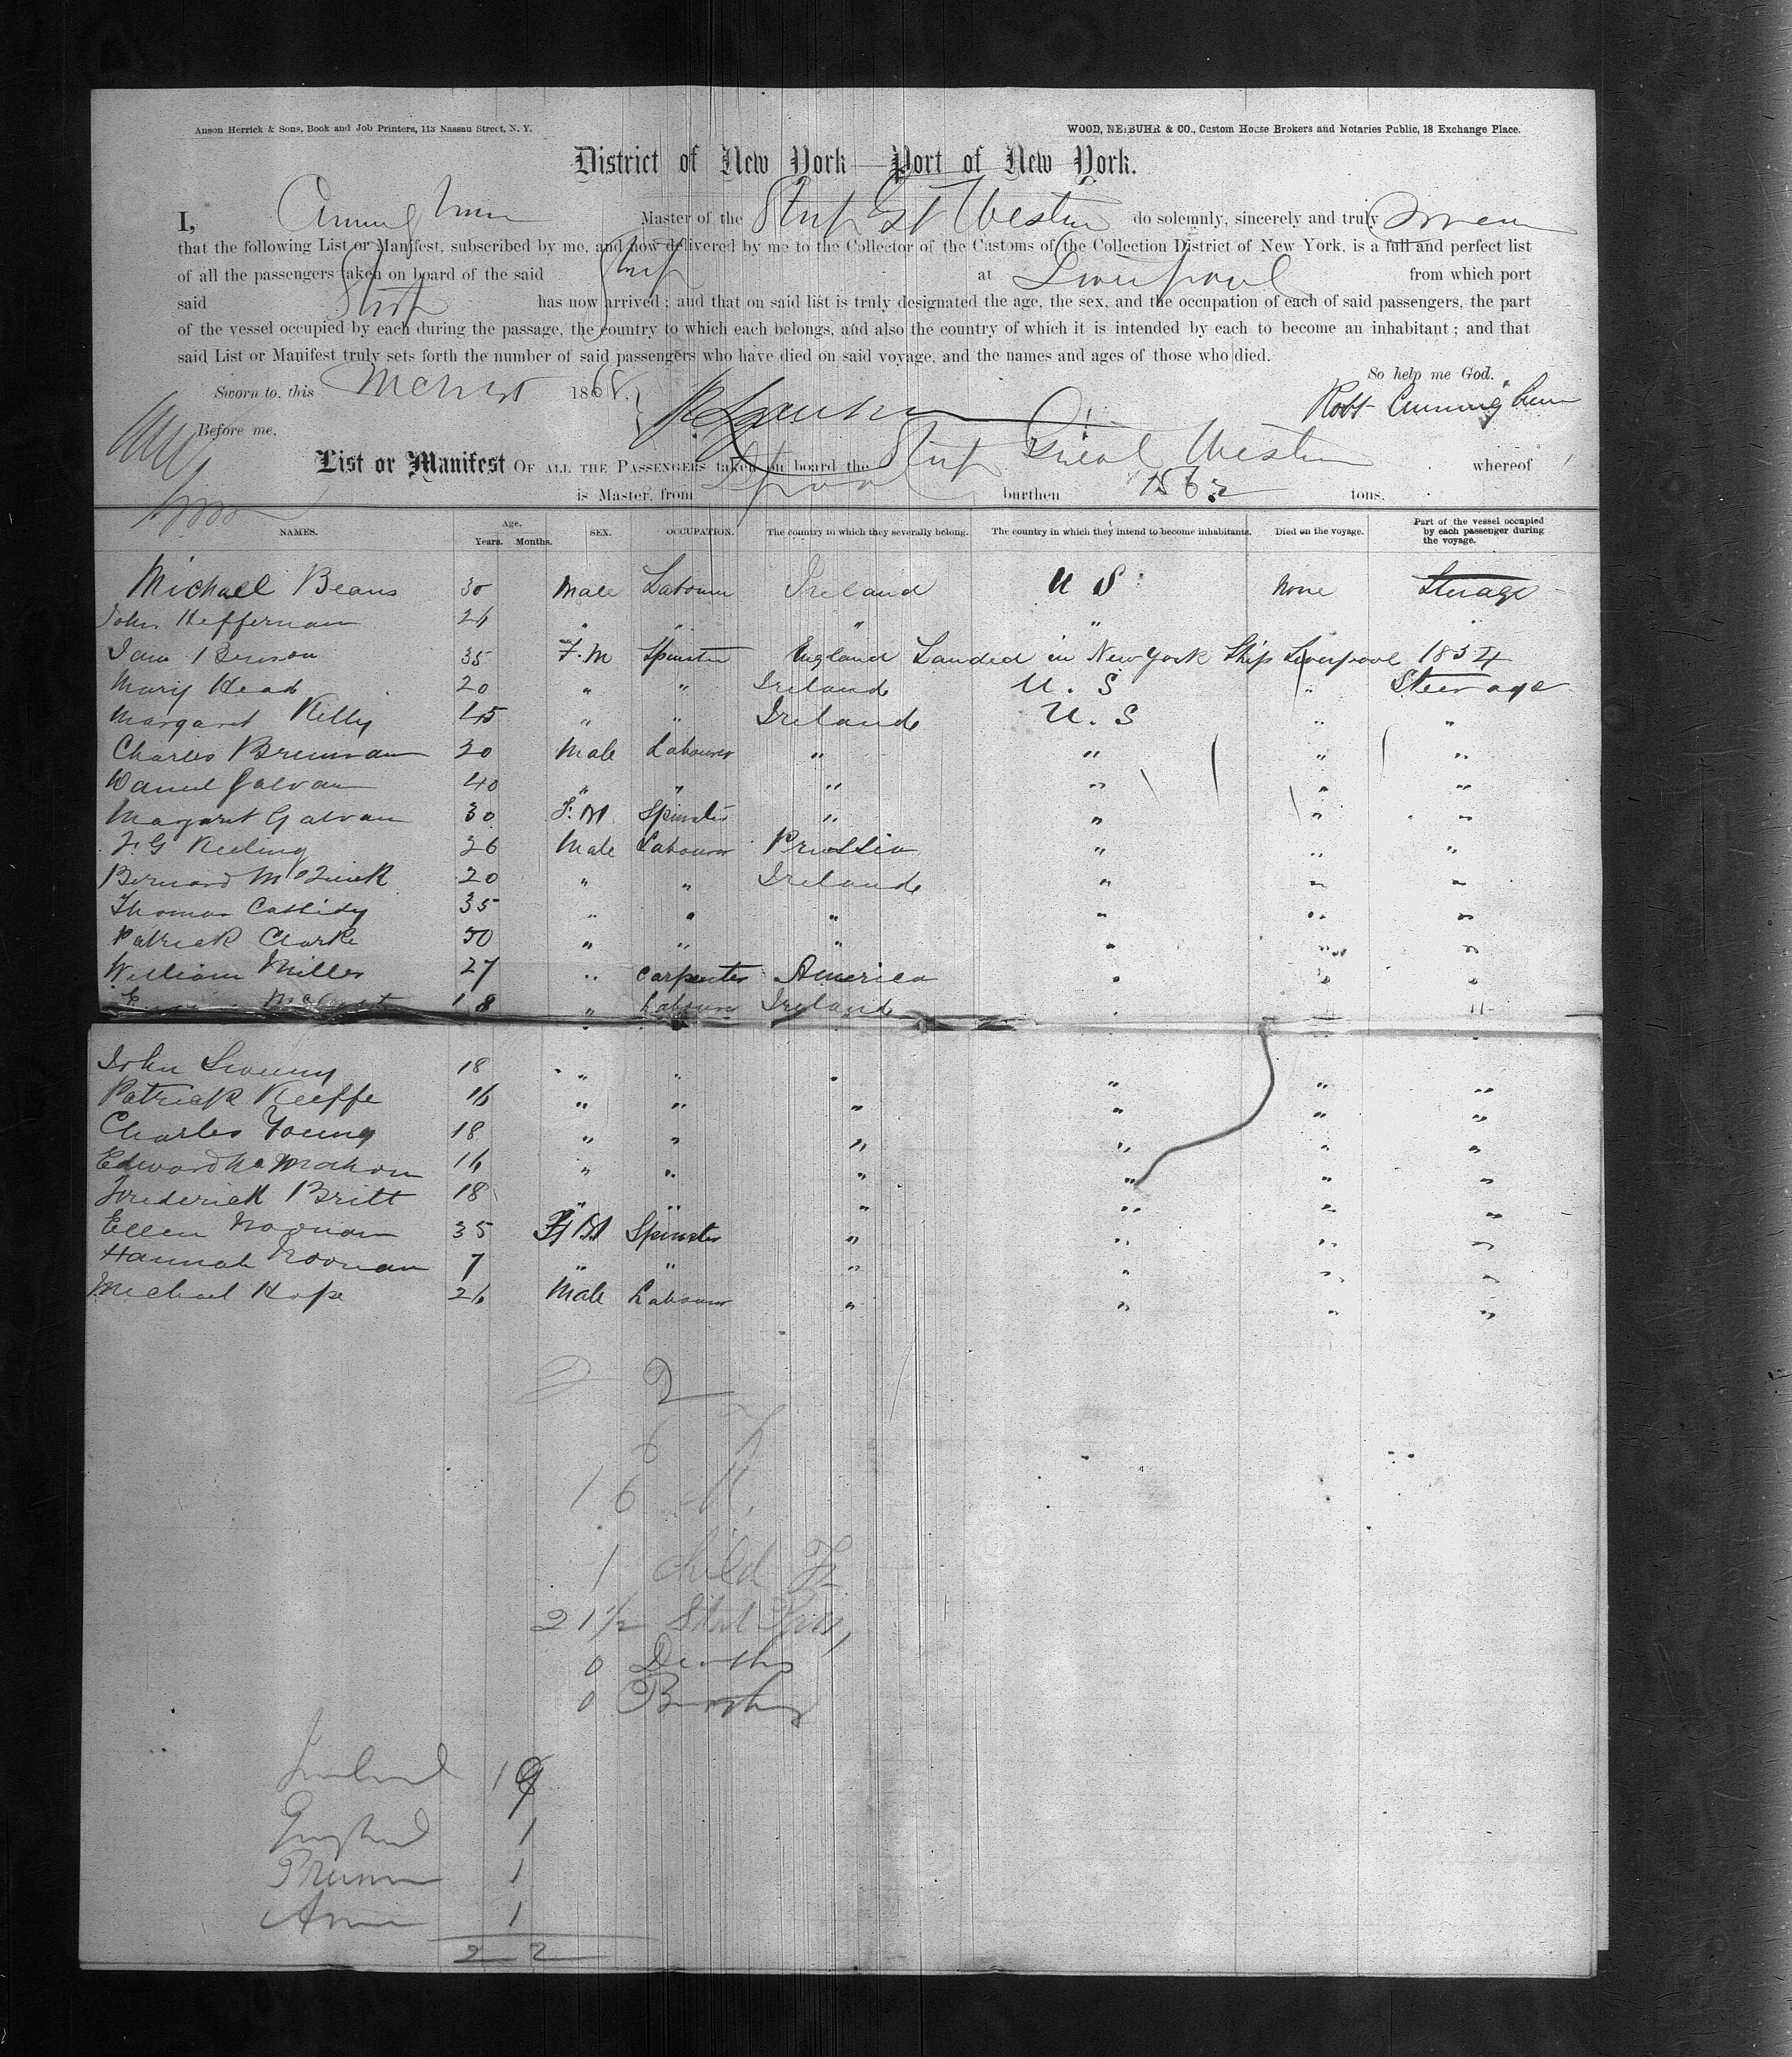 Anson Herrick & Sons, Book and Job Printers, 113 Nassau Street, N. Y. WOOD, NEIBUHR & CO., Custom House Brokers and Notaries Public, 18 Exchange Place.
District of New York—Port of New York.
I, Cunningham Master of the Ship Gt Western do solemnly, sincerely and truly swear
that the following List or Manifest, subscribed by me, and now delivered by me to the Collector of the Customs of the Collection District of New York, is a full and perfect list
of all the passengers taken on board of the said Ship at Liverpool from which port
said Ship has now arrived; and that on said list is truly designated the age, the sex, and the occupation of each of said passengers, the part
of the vessel occupied by each during the passage, the country to which each belongs, and also the country of which it is intended by each to become an inhabitant; and that
said List or Manifest truly sets forth the number of said passengers who have died on said voyage, and the names and ages of those who died.
So help me God.
Sworn to, this 1868. Robt Cunningham
Before me,
List or Manifest OF ALL THE PASSENGERS taken on board the Ship Great Western whereof
is Master, from Lpool burthen 1562 tons.
NAMES. Age. Years. Months. SEX. OCCUPATION. The country to which they severally belong. The country in which they intend to become inhabitants. Died on the voyage. Part of the vessel occupied by each passenger during the voyage.
Michael Beans 30 Male Labourer Ireland U S None Sterage
John Heffernan 24 " " " "
35 F.M Spinster England Landed in New York Ship Liverpool 1854
Mary Head 20 " " Ireland U. S " Steerage
Margaret Kelly 45 " " Ireland U. S " "
Charles Brennan 20 Male Labourer " " " "
Daniel Galvan 40 " " " " " "
Margaret Galvan 30 F.M Spinster " " " "
F. G Keeling 26 Male Labourer Prussia " " "
Bernard McQuick 20 " " Ireland " " "
Thomas Cassidy 35 " " " " " "
Patrick Clarke 50 " " " " " "
William Miller 27 " Carpenter America " " "
18 " Labourer Ireland " "
John Sweeny 18 " " " " " "
Patrick Keeffe 16 " " " " " "
Charles Young 18 " " " " " "
Edward McMahon 16 " " " " " "
Frederick Britt 18 " " " " " "
Ellen Noonan 35 F M Spinster " " " "
Hannah Noonan 7 " " " " " "
Michael Hope 26 Male Labourer " " " "
2
6
16 M.
1 child F
21 1/2
0 Deaths
0 Births
Ireland 19
England 1
Prussia 1
Amer 1
22